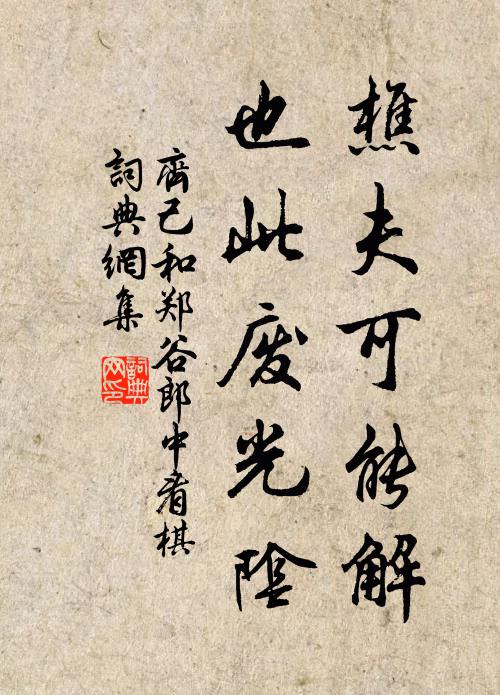 樵夫可能解
也此废光陰
齊己和郑谷郎中看棋
詞典網集
詞典网印